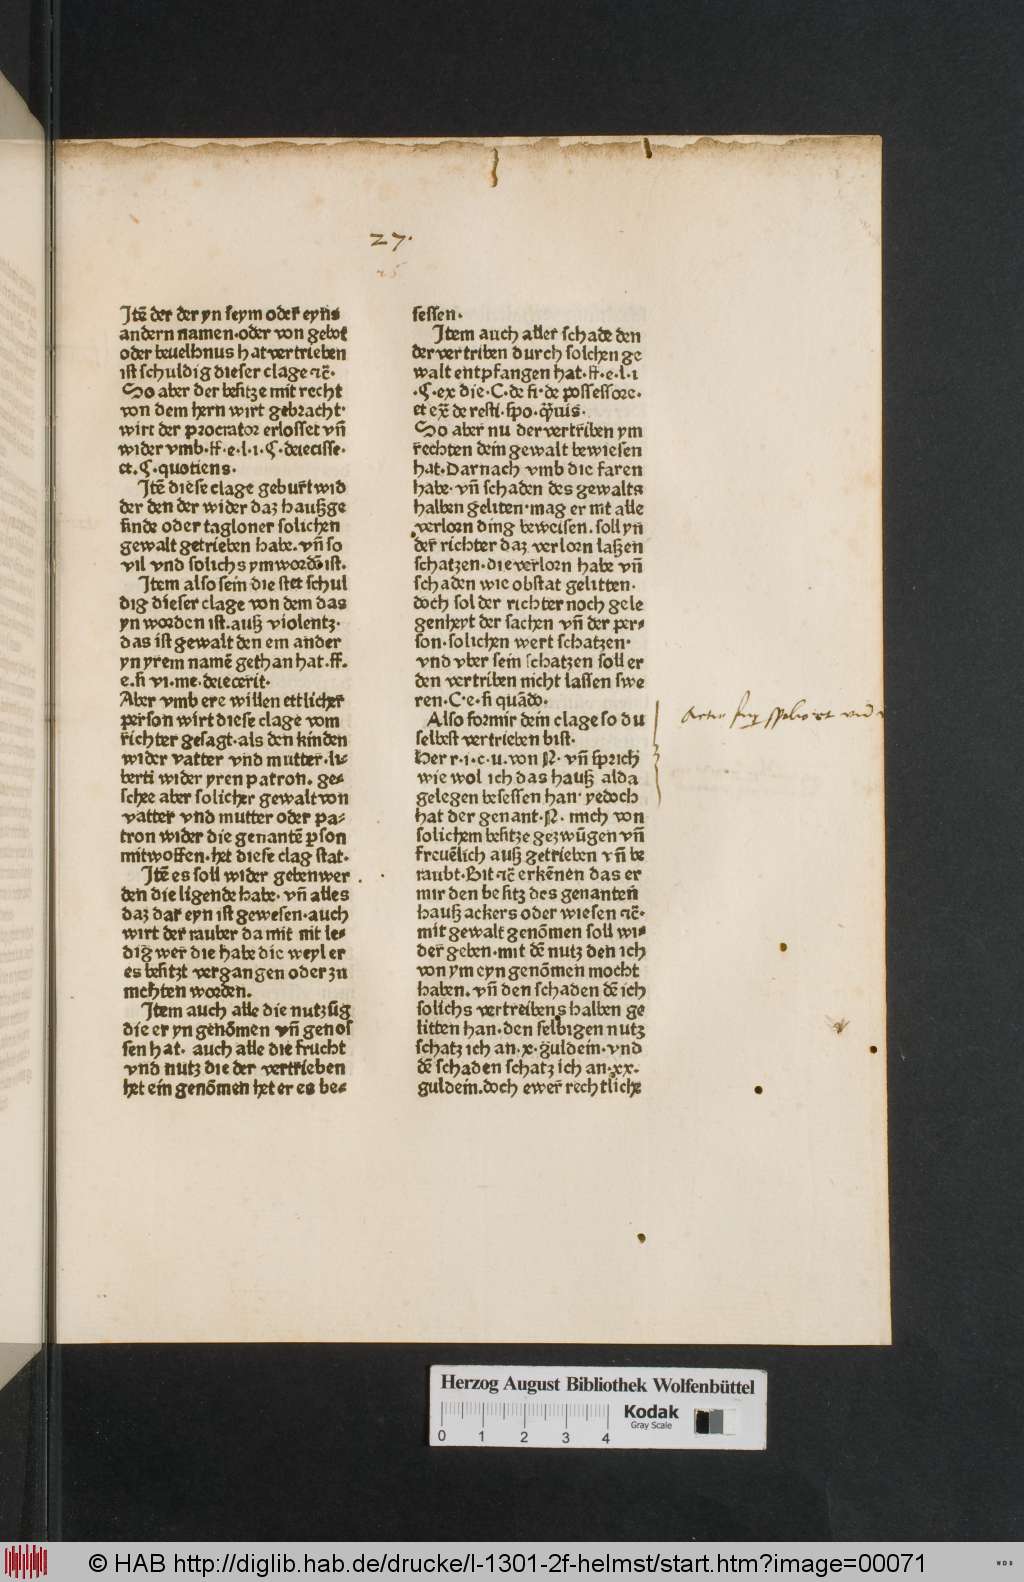 27.
25
Itē der der yn seym oder eyñs
andern namen·oder von gebot
oder beuelhnus hat vertrieben
ist schuldig dieser clage ꝛc̄·
So aber der besitze mit recht
von dem hern wirt gebracht·
wirt der procrator erlosset vñ
wider vmb·ff·e·l·i·ꝯ·deiecisse·
et·ꝯ·quotiens·
Itē diese clage geburt wid
der den der wider daz haußge
sinde oder tagloner solichen
gewalt getrieben habe·vñ so
vil vnd solichs ym wordō ist·
Item also sein die stet schul
dig dieser clage von dem das
yn worden ist·auß violentz·
das ist gewalt den em ander
yn yrem namē gethan hat·ff·
e·si vi·me·deiecerit·
Aber vmb ere willen ettlicher
person wirt diese clage vom
richter gesagt·als den kinden
wider vatter vnd mutter·li⸗
berti wider yren patron· ge⸗
schee aber solicher gewalt von
vatter vnd mutter oder pa⸗
tron wider die genantē pson
mitwoffen·het diese clag stat·
Itē es soll wider geben wer
den die ligende habe· vñ alles
daz dar eyn ist gewesen·auch
wirt der rauber da mit nit le⸗
dig wer die habe die weyl er
es besitzt vergangen oder zu
mchten worden.
Item auch alle die nutzūg
die er yn genōmen vñ genos
sen hat· auch alle die frucht
vnd nutz die der vertrieben
het ein genōmen het er es be⸗
sessen·
Item auch aller schade den
der vertriben durch solchen ge
walt entpfangen hat·ff·e·l·i
·ꝯ·ex die·C·de fi·de possessore·
et ex̄ de resti·spo·q̄uis·
So aber nu der vertriben ym
rechten dein gewalt bewiesen
hat·Darnach vmb die faren
habe·vñ schaden des gewalts
halben geliten·mag er mt alle
verlorn ding beweisen·soll yn
der richter daz verlorn laßen
schatzen·die verlorn habe vñ
schaden wie obstat gelitten·
doch sol der richter noch gele
genheyt der sachen vñ der per⸗
son·solichen wert schatzen·
vnd vber sein schatzen soll er
den vertriben nicht lassen swe
ren·C·e·si quādo·
Also formir dein clage so du
selbest vertrieben bist·
Her r·i·c·u·von N· vñ sprich
wie wol ich das hauß alda
gelegen besessen han· yedoch
hat der genant·N· mich von
solichem besitze gezwūgen vñ
freuēlich auß getrieben vñ be
raubt·Bit ꝛc̄ erkēnen das er
mir den besitz des genanten
hauß ackers oder wiesen ꝛc̄·
mit gewalt genōmen soll wi⸗
der geben·mit dē nutz den ich
von ym eyn genōmen mocht
haben· vñ den schaden dē ich
solichs vertreibens halben ge
litten han·den selbigen nutz
schatz ich an·x·guldein·vnd
dē schaden schatz ich an·xx·
guldein·doch ewer rechtliche
Herzog August Bibliothek Wolfenbüttel
Kodak
Gray Scale
0 1 2 3 4
© HAB http://diglib.hab.de/drucke/l-1301-2f-helmst/start.htm?image=00071